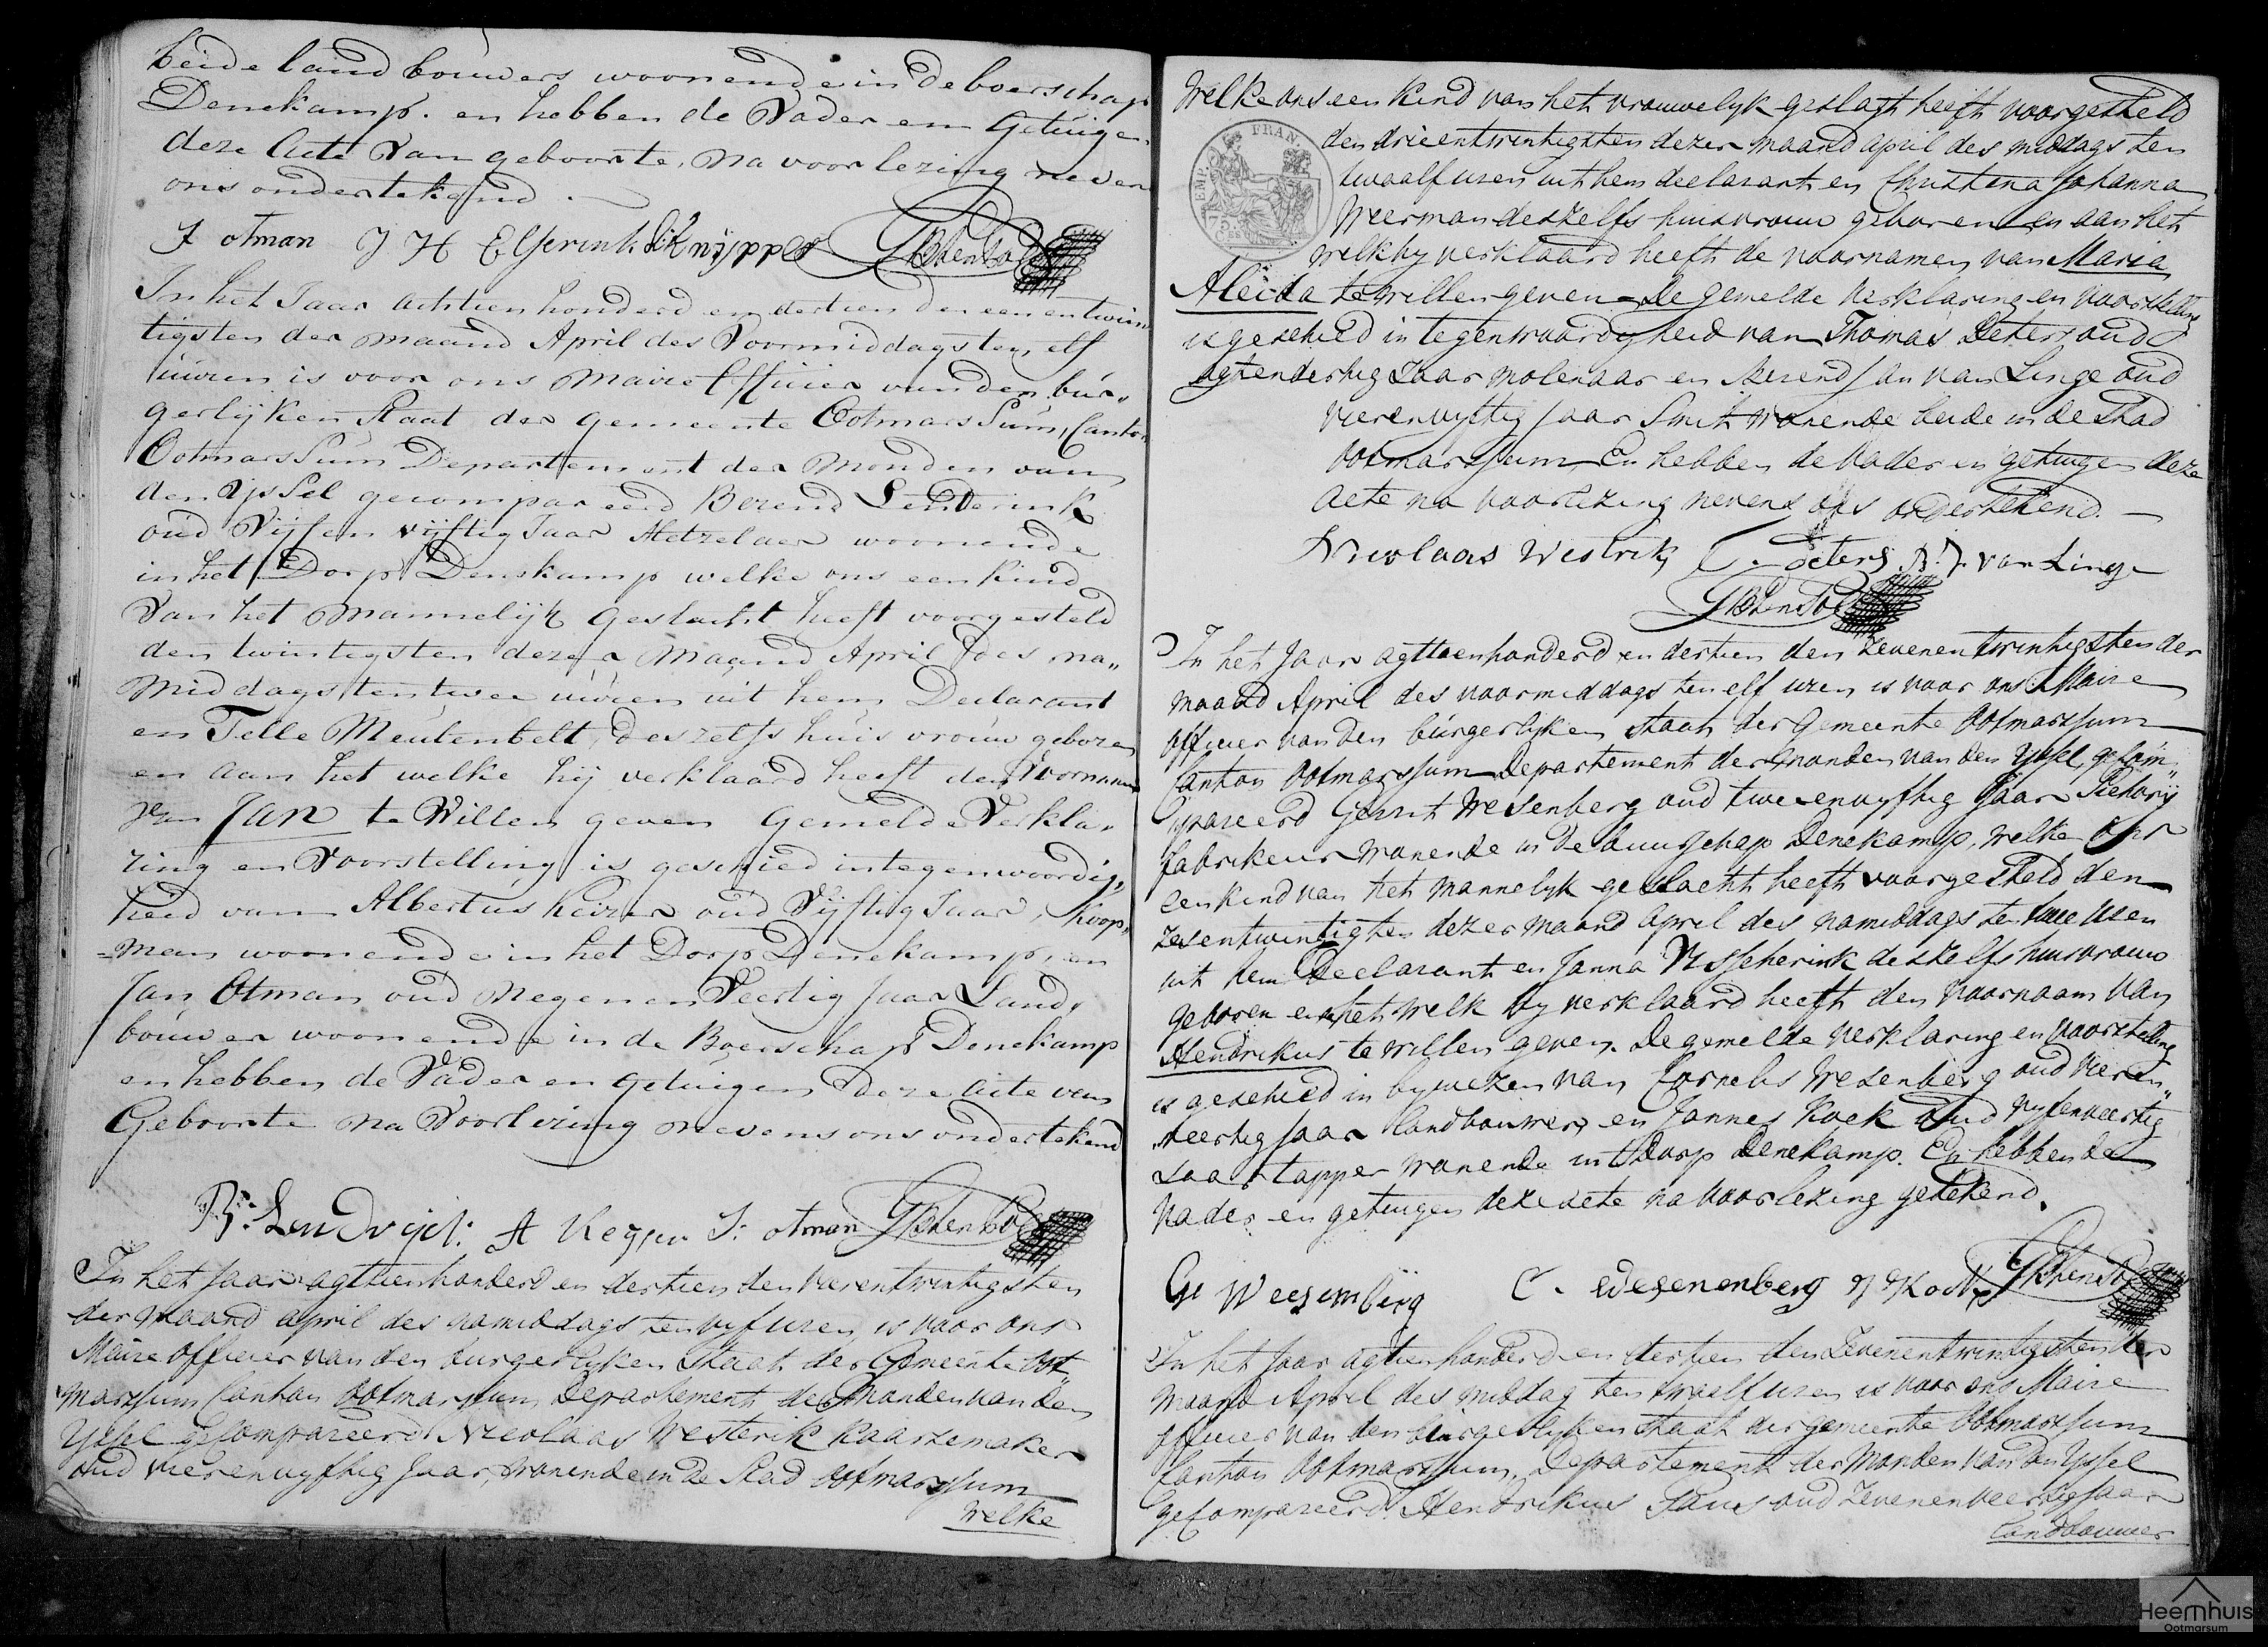 beide landbouwers woonende in de boerschap
Denekamp. en hebben de Vader en Getuigen
deze Acte Van geboorte, na voorlezing neven
ons ondertekend.
J otman J H Elferink
In het Jaar achtienhonderd en dertien den een en twin
tigsten der maand April des Voormiddags ten elf
uuren is voor ons Maire Officier van den bur„
gerlijken Staat der gemeente Ootmarssum, Canton
Ootmarssum Departement der Monden van
den Yssel gecompareerd Berend Lenderink
oud Vijf en vijftig Jaar Metzelaer woonende
in het Dorp Denekamp welke ons een kind
Van het Mannelijk Geslacht heeft voorgesteld
den twintigsten dezer Maand April des na„
Middags ten twee uuren uit hem Declarant
en Telle Meutenbelt, deszelfs huisvrouw geboren
en aan het welke hij verklaard heeft den Voornaam
Van Jan te Willen geven Gemelde Verkla„
ring en Voorstelling is geschied in tegenwoordig„
heid van Albertus Keizer oud Vijftig Jaar, koop„
=man woonende in het Dorp Denekamp, en
Jan Otman oud Negen en Veertig Jaar Land„
bouwer woonende in de Boerschap Denekamp
en hebben de Vader en getuigen deze acte van
Geboorte Na Voorlezing nevens ons ondertekend
A Keyser J: otman
In het Jaar agttienhonderd en dertien den vierentwintigsten
der maand april des namiddags ten vyf uren, is voor ons
Maire officier van den burgerlyken Staat der Gemeente Oot„
marssum Canton Ootmarssum Departement der Monden van den
Yssel gecompareerd Nicolaas Westerik kaarzemaker
oud vierenvyftig Jaar, wonende in de Stad Ootmarssum
welke
Welke ons een kind van het vrouwelyk geslagt heeft voorgesteld
den drieentwintigsten dezer maand april des middags ten
twaalf uren uit hem declarant en Christina Johanna
Weerman deszelfs huisvrouw geboren en aan het
welk hy verklaard heeft de voornamen van Maria
Aleida te willen geven. De gemelde verklaring en voorstelling
is geschied in tegenwaardigheid van Thomas Peters oud
agtendertig Jaar molenaar en Berend Jan van Linge oud
vierenvyftig Jaar Smit wonende beide in de Stad
Ootmarssum En hebben de Vader en getuigen deze
acte na voorlezing nevens ons ondertekend. —
EMP. FRAN.
75.
Nicolaas Westrik Peters B. J. van Linge
In het Jaar agttienhonderd en dertien den zevenentwintigsten der
maand April des voormiddags ten elf uren is voor ons Maire
officier van den burgerlyken Staat der Gemeente Ootmarssum
Canton Ootmarssum Departement der Monden van den Yssel gecom„
pareerd Gerrit Wesenberg oud tweeenvyftig Jaar
fabrikeur wonende in de buurschap Denekamp, welke ons
een kind van het mannelyk geslacht heeft voorgesteld den
zesentwintigsten dezer maand April des namiddags ten twee uren
uit hem Declarant en Janna deszelfs huisvrouw
geboren en het welk hy verklaard heeft den voornaam van
Hendrikus te willen geven. De gemelde verklaring en voorstelling
is geschied in bywezen van Cornelis Wesenberg oud vieren„
veertig Jaar landbouwer en Jannes Kock oud vyfenveertig
Jaar tapper wonende in t Dorp Denekamp. En hebben de
Vader en getuigen deze acte na voorlezing getekend.
C. Wesenenberg J Kock
In het Jaar agtienhonderd en dertien den Zevenentwintigsten der
maand April des middag ten twaalf uren is voor ons Maire
officier van den burgerlyken Staat der gemeente Ootmarssum
Canton Ootmarssum, Departement der Monden van den Yssel
gecompareerd Hendrikus oud zevenenveertig Jaar
landbouwer
Heemhuis
Ootmarsum